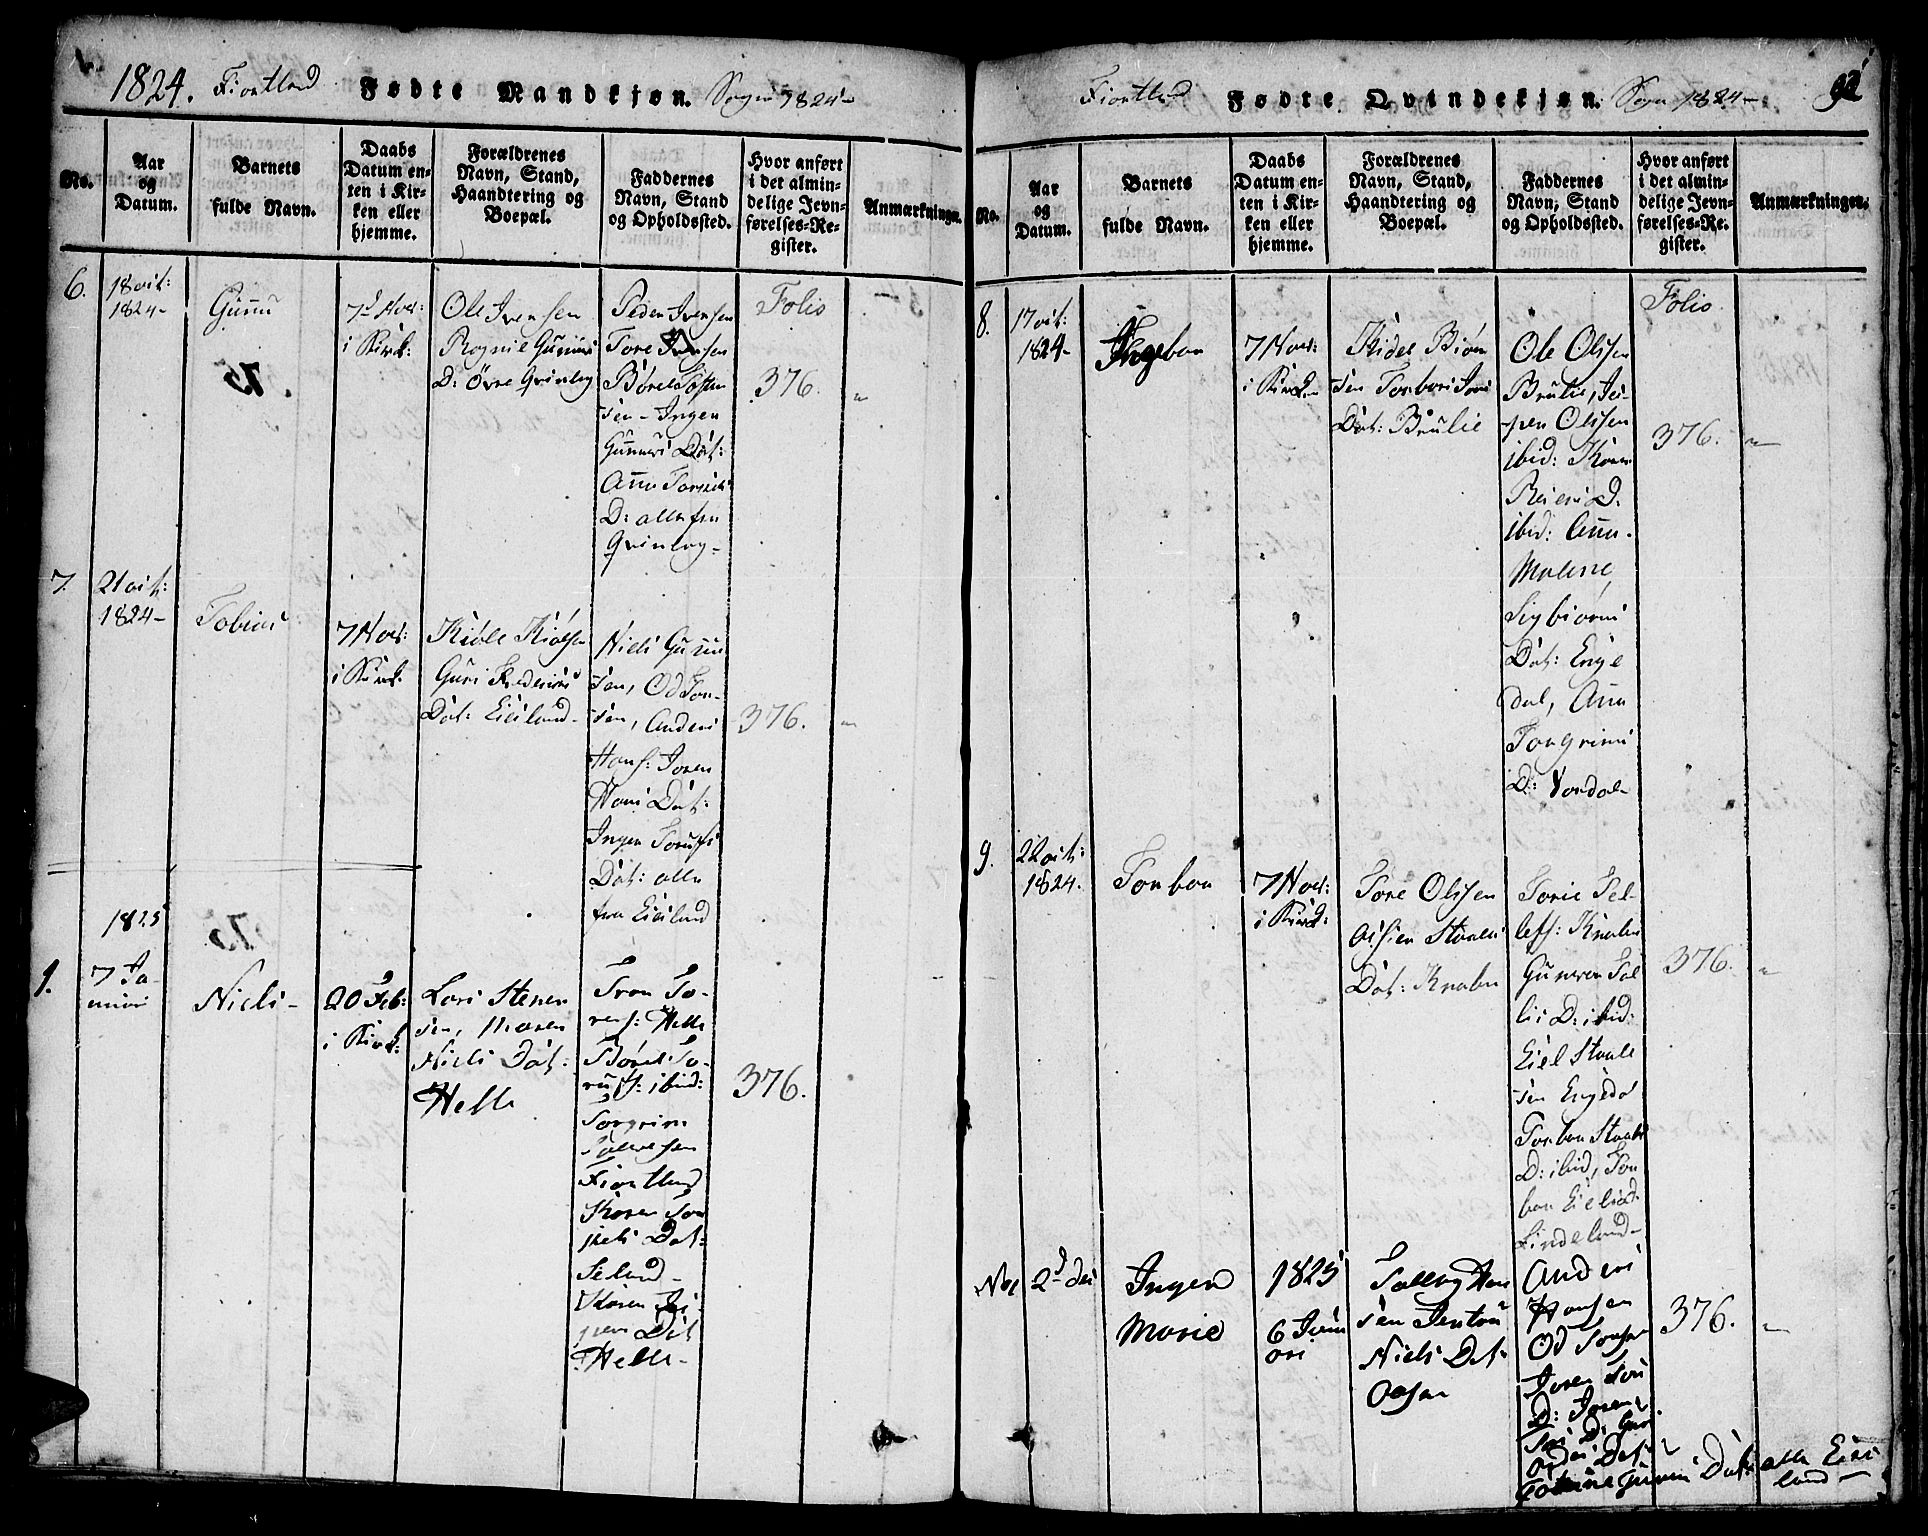 1824. Fiotland Fødte Mandkjøn. Sogn 1824-
No.
Aar
og
Datum.
Barnets
fulde Navn.
Daabs
Datum en-
ten i Kir-
ken eller
hjemme.
Forældrenes
Navn, Stand,
Haandtering og
Boepæl.
Faddernes
Navn, Stand
og Opholdssted.
Hvor anført
i det almin-
delige Jevn-
førelses-Re-
gister.
Anmærkninger.
6.
18 oct:
1824-
Gunu
7d Nov:
i Kirk:
Ole Iversen
Rognie Guners
D: Øvre Qvinlog
Peder Iversen
Tore Iversen
Børel Tosten
sen - Inger
Guners Dat:
Anne
D: alle fra
Qvinlog-
Folio
376.
7.
21 oct:
1824-
Tobias
7 Nov:
i Kirk:
Kidle Kiølsen
Guri
Dat: Eiesland-
Niels Gunu
sen, Od Tor-
sen, Anders
Hans: Joren
Hans Dat:
Inger
Dat: alle
fra Eiesland
376.
1825
1.
7 Ja-
nuari
Niels-
20 Feb:
i Kirk:
Lars Stener
sen, Maren
Niels Dat:
Helle
Tron To-
res: Helle
Børel To-
ibid:
Torgrim
Salvesen
Fiotland
Karen Tor
kels Dat:
Seland-
Karen Jes
pers Dat
Helle-
376.
Fiotland Fødte Qvindekjøn. Sogn 1824- 92
No.
Aar
og
Datum.
Barnets
fulde Navn.
Daabs
Datum en-
ten i Kir-
ken eller
hjemme.
Forældrenes
Navn, Stand,
Haandtering og
Boepæl.
Faddernes
Navn, Stand
og Opholdssted.
Hvor anført
i det almin-
delige Jevn-
førelses-Re-
gister.
Anmærkninger.
8.
17 oct:
1824-
Ingebor
7 Nov:
i Kirk-
Kidel Biørn
sen Torbor Jens
Dat: Brulie
Ole Olssen
Brulie, Jes-
per Olssen
ibid: Karen
Reiers D.
ibid: Anna
Malene
Sigbiørns
Dat: Enge
dal, Ana
Torgrims
D: Vordal-
Folio
376.
9.
22 oct:
1824.
Torbor
7 Nov:
i Kirk:
Tore Olssen
Staales
Dat: Knaben
Torie Tel-
lefs: Knaben
Guneren Tal
lis D: ibid:
Eiel Staale
sen Engeda
Torbor Staales
D: ibid, Tor
bor Eiels D
Lindeland-
376.
2d Dec
Ingen
Marie
1825
6 Janu
ari
Salleg Han
sen Jentou
Niels Dat:
Anders
Hansen
Od Torsen
Joren Tors
D: Joren
Dat: alle Eies
land-
376.